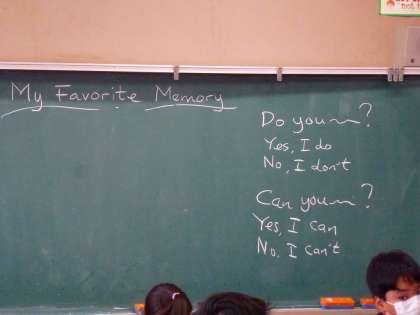 My Favorite Memory
Do you~?
Yes, I do
No, I don't
Can you~?
Yes, I can
No, I can't